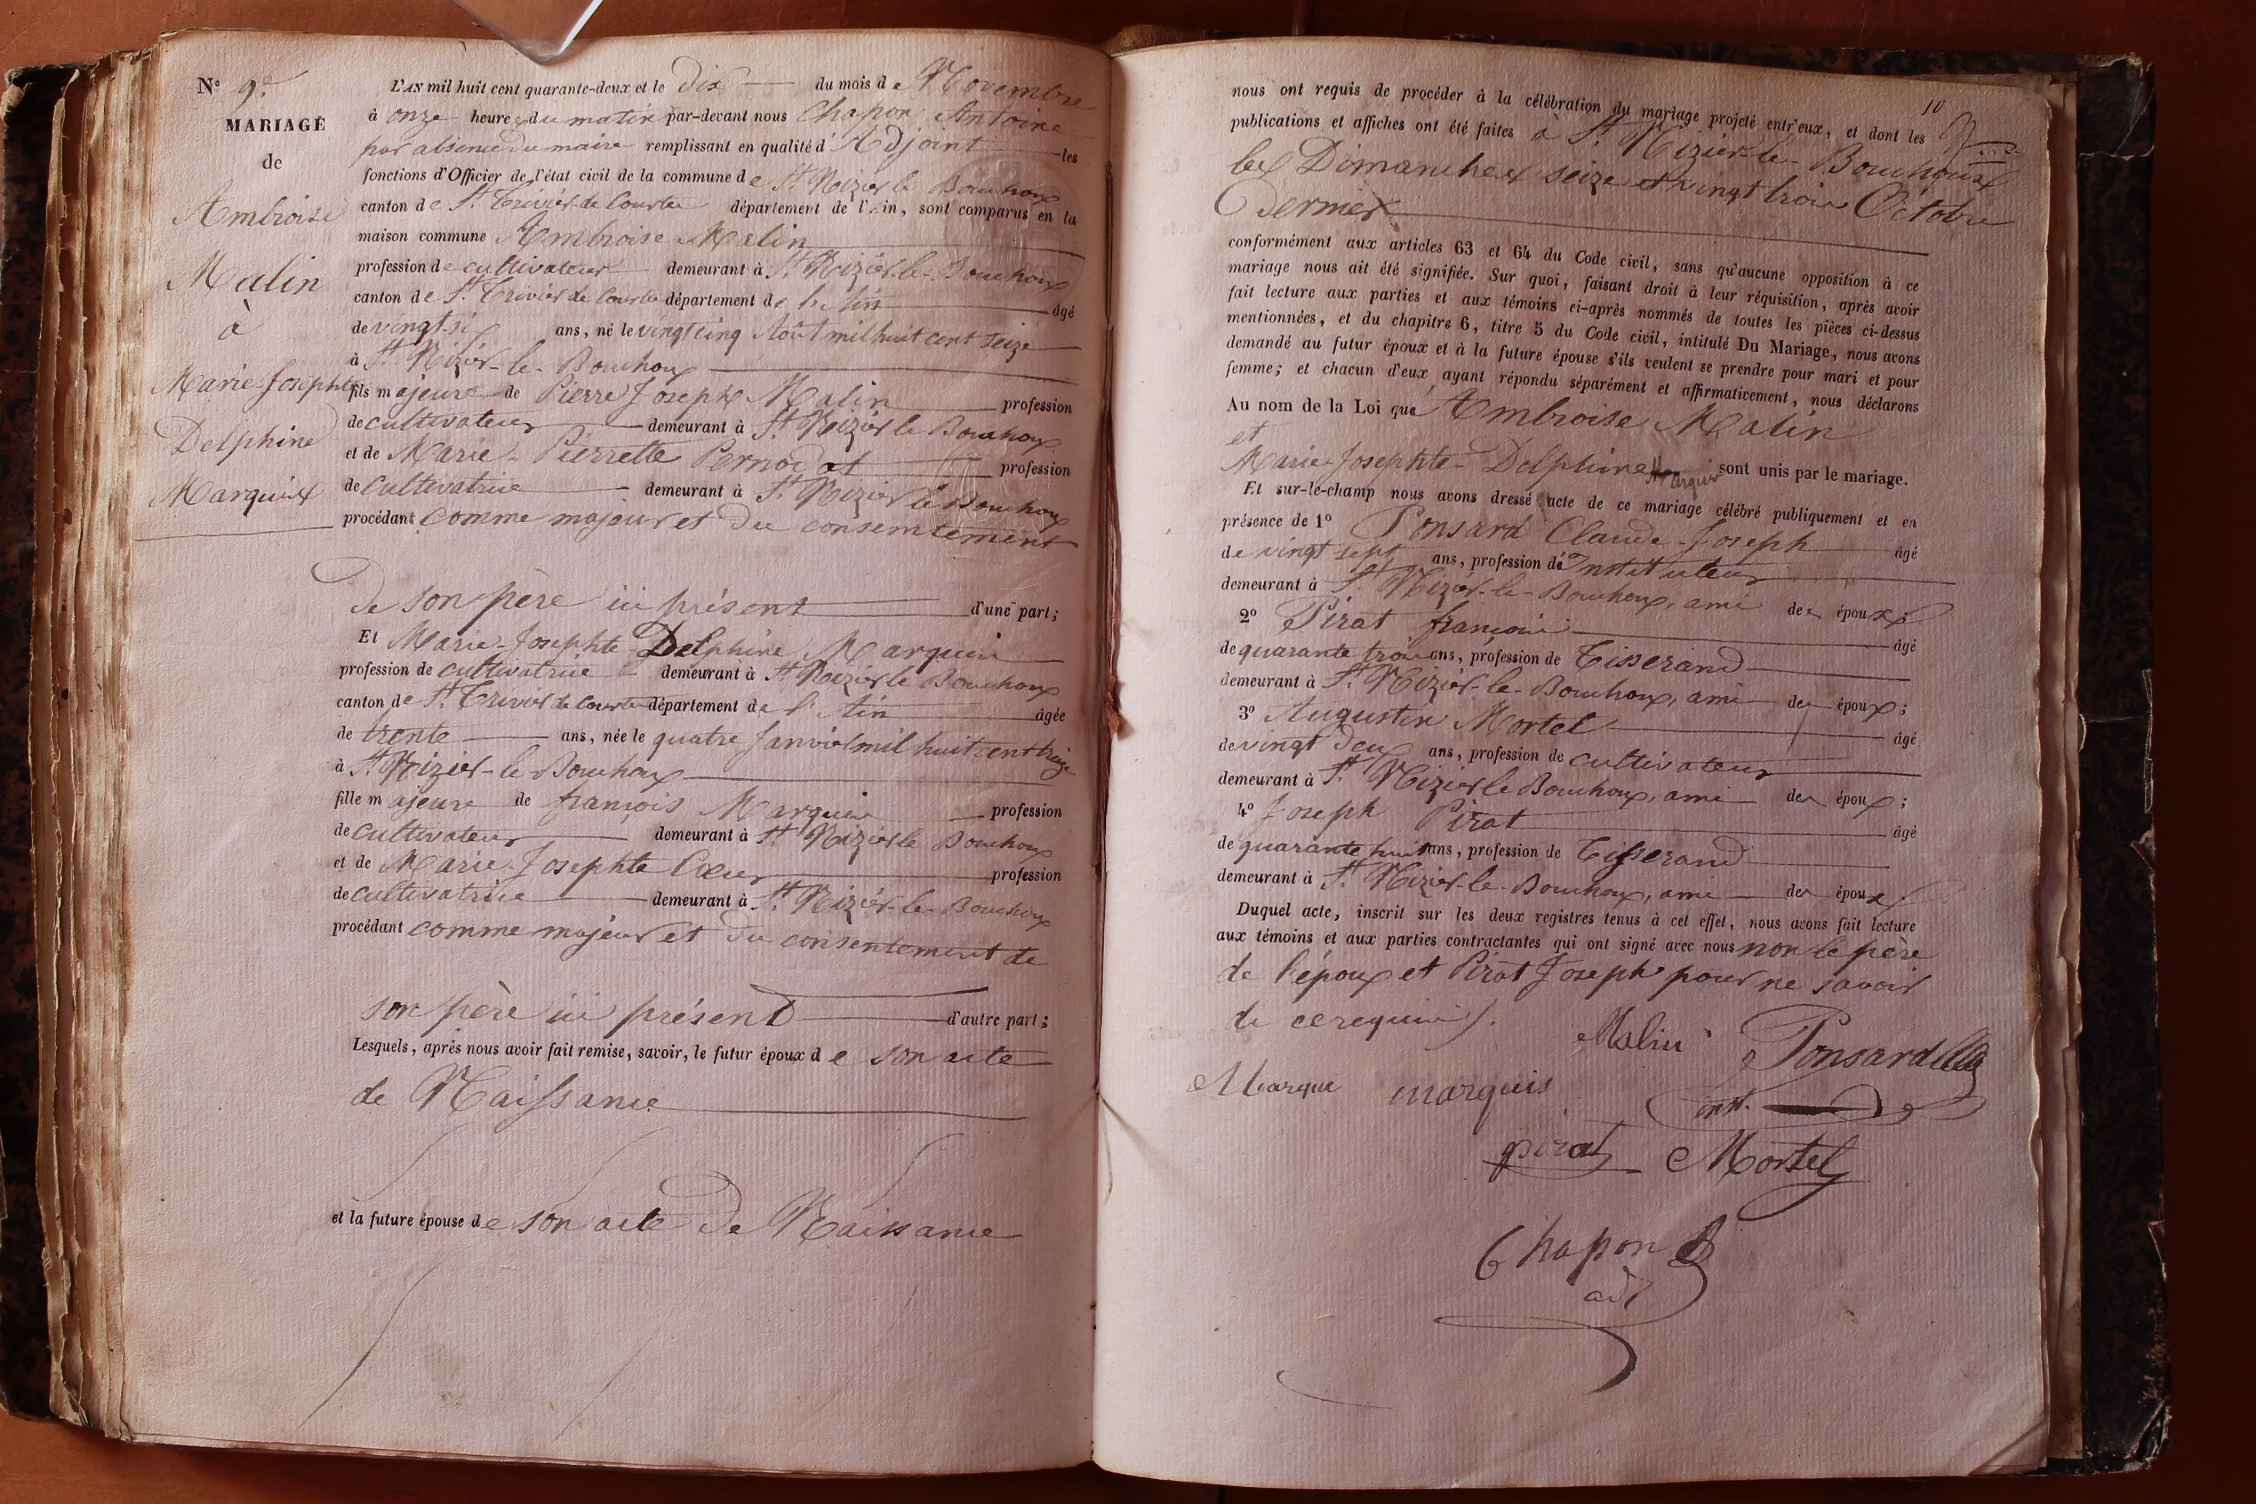 N° 9e
MARIAGE
de
Ambroise
Malin
à
Marie-Josephte
Delphine
Marquis
L'AN mil huit cent quarante-deux et le dix du mois de Novembre
à onze heures du matin par-devant nous Chapon Antoine
par absence du maire remplissant en qualité d'Adjoint les
fonctions d'Officier de l'état civil de la commune de St Nizier le Bouchoux
canton de St Trivier de Courtes département de l'Ain, sont comparus en la
maison commune Ambroise Malin
profession de cultivateur demeurant à St Nizier-le-Bouchoux
canton de St Trivier de Courtes département de l'Ain âgé
de vingt-six ans, né le vingt cinq Août mil huit cent seize
à St Nizier-le-Bouchoux
fils majeur de Pierre Joseph Malin profession
de cultivateur demeurant à St Nizier le Bouchoux
et de Marie-Pierrette Pernodat profession
de cultivatrice demeurant à St Nizier le Bouchoux
procédant comme majeur et du consentement
de son père ici présent d'une part;
Et Marie-Josephte Delphine Marquis
profession de cultivatrice demeurant à St Nizier le Bouchoux
canton de St Trivier de Courtes département de l'Ain âgée
de trente ans, née le quatre Janvier mil huit cent treize
à St Nizier-le-Bouchoux
fille majeure de françois Marquis profession
de cultivateur demeurant à St Nizier le Bouchoux
et de Marie-Josephte Cœur profession
de cultivatrice demeurant à St Nizier-le-Bouchoux
procédant comme majeur et du consentement de
son père ici présent d'autre part;
Lesquels, après nous avoir fait remise, savoir, le futur époux de son acte
de Naissance
et la future épouse de son acte de Naissance
10
nous ont requis de procéder à la célébration du mariage projeté entr'eux, et dont les
publications et affiches ont été faites à St Nizier-le-Bouchoux
les Dimanches seize et vingt trois Octobre
dernier
conformément aux articles 63 et 64 du Code civil, sans qu'aucune opposition à ce
mariage nous ait été signifiée. Sur quoi, faisant droit à leur réquisition, après avoir
fait lecture aux parties et aux témoins ci-après nommés de toutes les pièces ci-dessus
mentionnées, et du chapitre 6, titre 5 du Code civil, intitulé Du Mariage, nous avons
demandé au futur époux et à la future épouse s'ils veulent se prendre pour mari et pour
femme; et chacun d'eux ayant répondu séparément et affirmativement, nous déclarons
Au nom de la Loi que Ambroise Malin
et
Marie-Josephte-Delphine Marquis sont unis par le mariage.
Et sur-le-champ nous avons dressé acte de ce mariage célébré publiquement et en
présence de 1° Ponsard Claude-Joseph âgé
de vingt sept ans, profession d'Instituteur
demeurant à St Nizier-le-Bouchoux, ami des époux;
2° Pirat françois âgé
de quarante trois ans, profession de Tisserand
demeurant à St Nizier-le-Bouchoux, ami des époux;
3° Augustin Mortel âgé
de vingt deux ans, profession de cultivateur
demeurant à St Nizier le Bouchoux, ami des époux;
4° Joseph Pirat âgé
de quarante huit ans, profession de Tisserand
demeurant à St Nizier-le-Bouchoux, ami des époux
Duquel acte, inscrit sur les deux registres tenus à cet effet, nous avons fait lecture
aux témoins et aux parties contractantes qui ont signé avec nous non le père
de l'époux et Pirat Joseph pour ne savoir
de ce requis.
Malin Ponsard
Marque marquis inst.
pirat Mortel
Chapon
adt